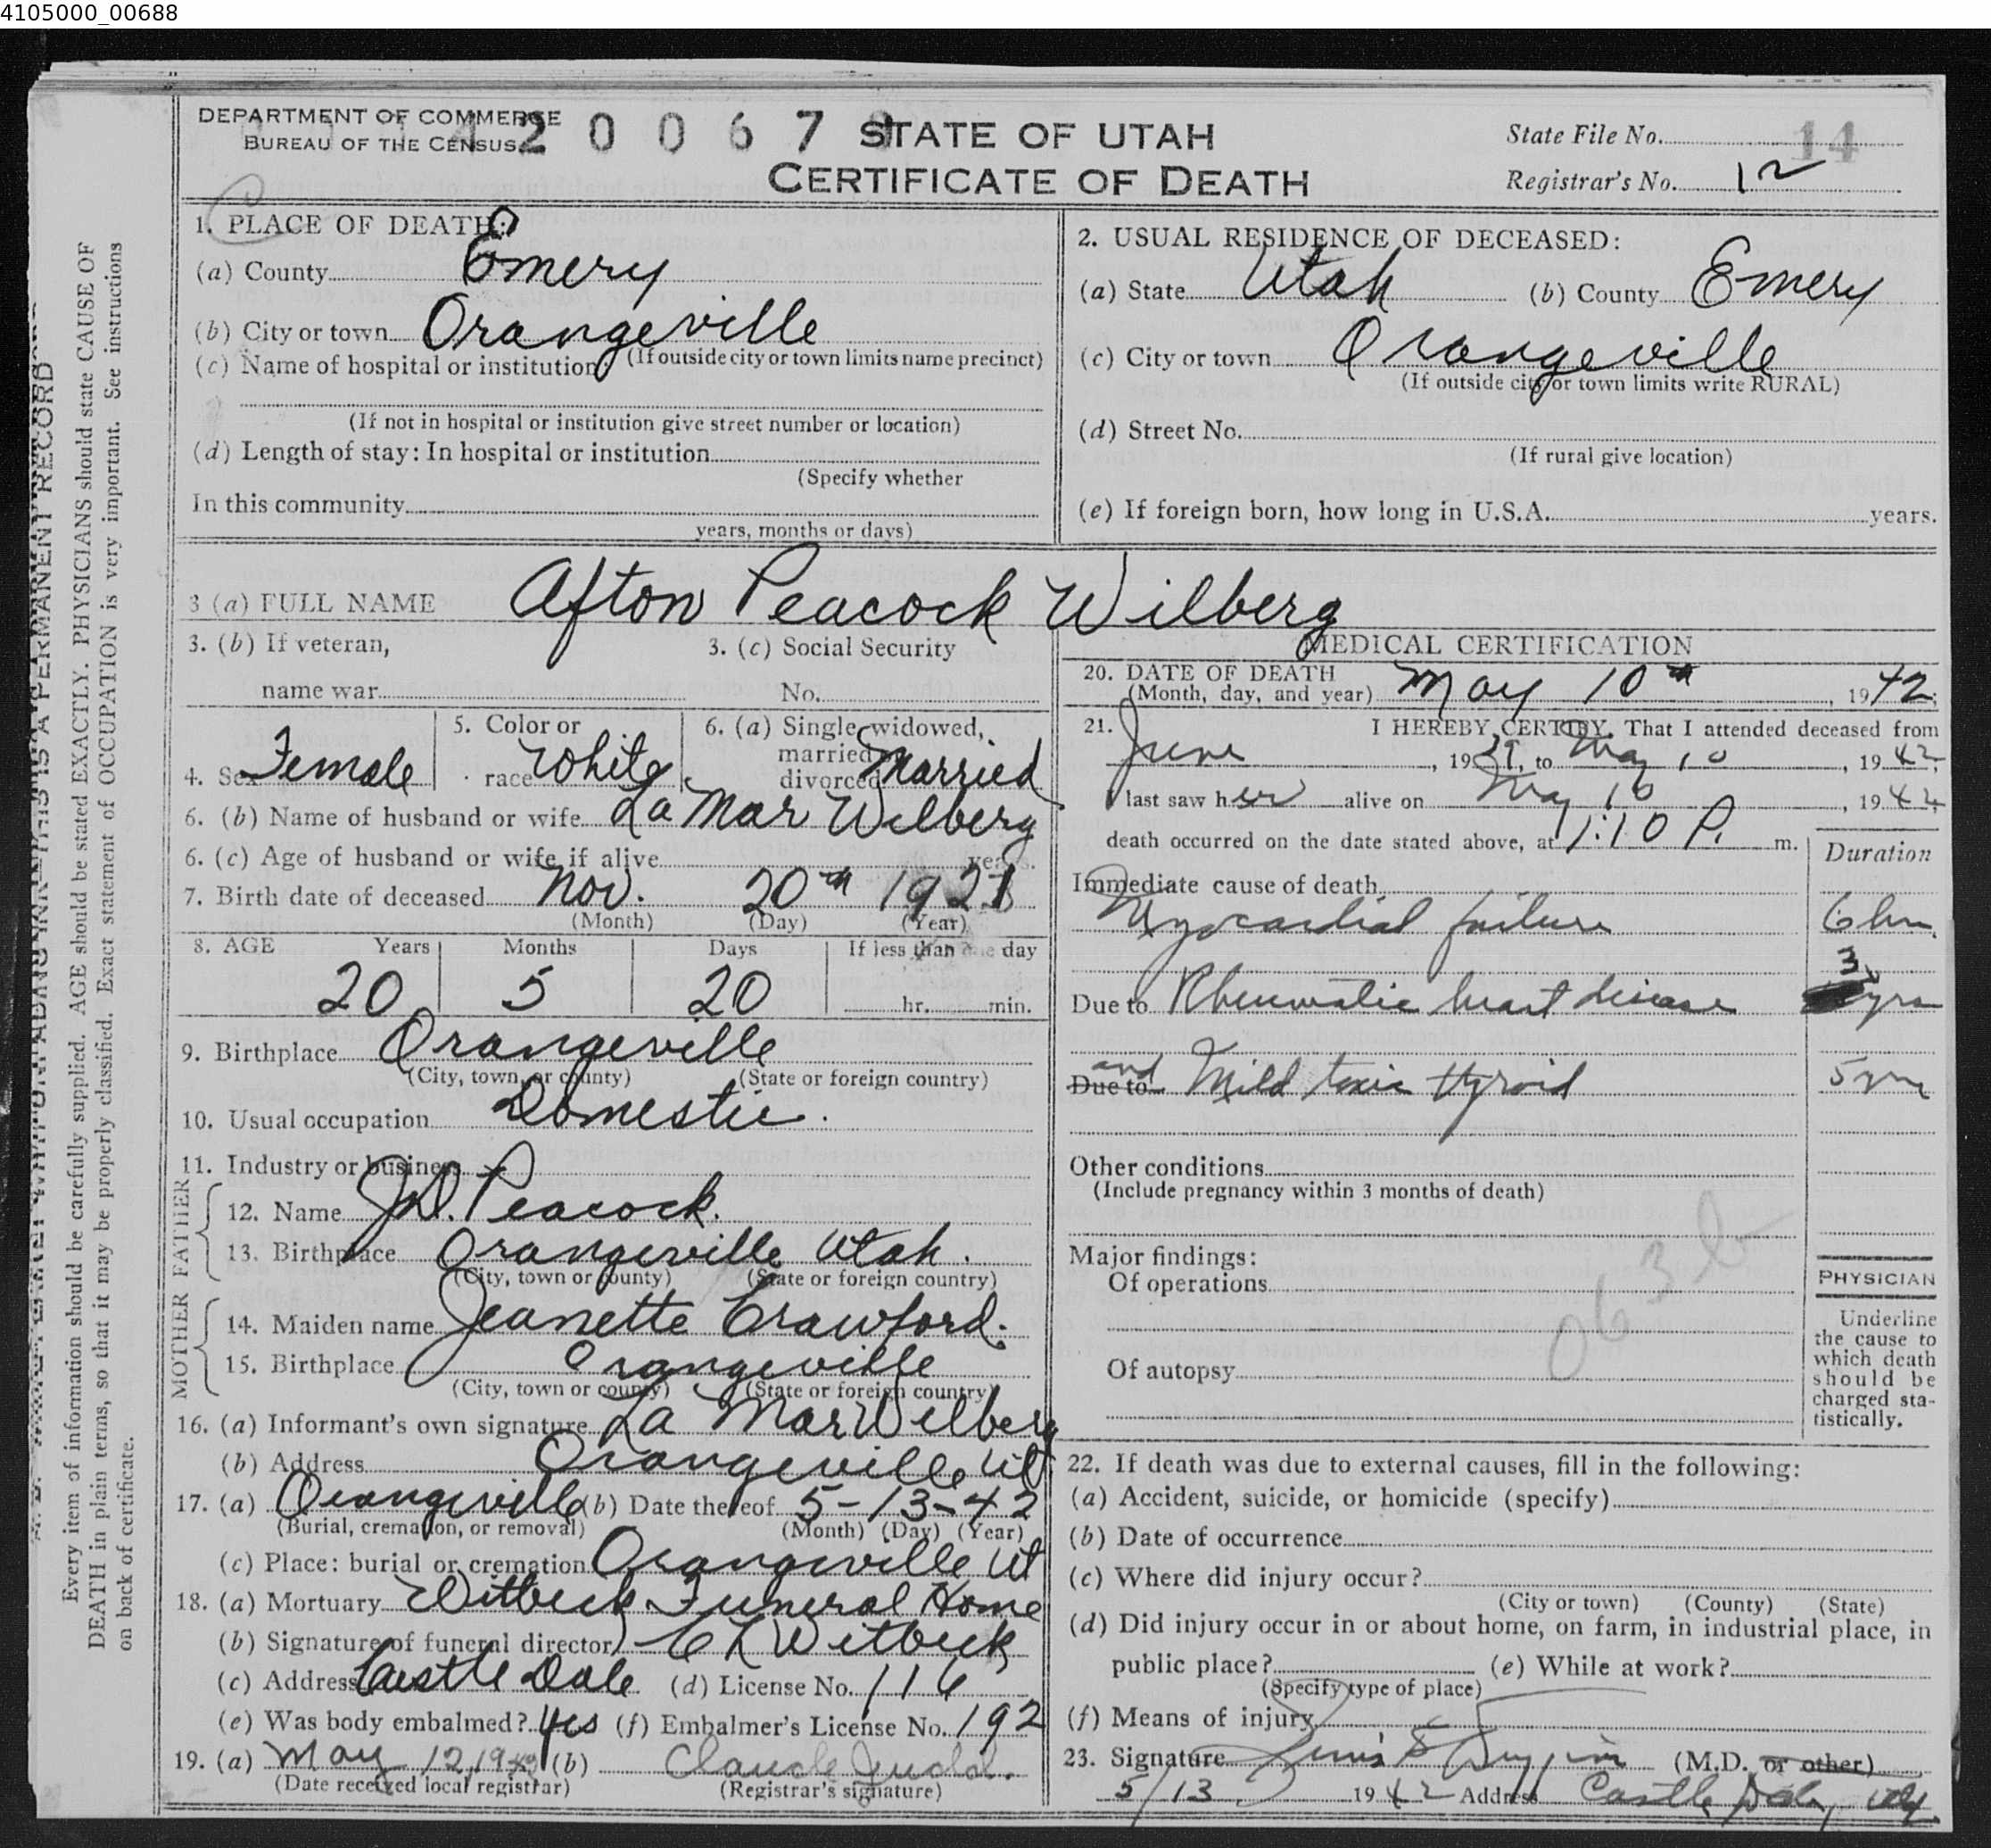 4105000_00688
DEPARTMENT OF COMMERCE
BUREAU OF THE CENSUS
2 0 0 6 7
STATE OF UTAH
CERTIFICATE OF DEATH
State File No. 14
Registrar's No. 12
1. PLACE OF DEATH:
(a) County Emery
(b) City or town Orangeville
(If outside city or town limits name precinct)
(c) Name of hospital or institution:
(If not in hospital or institution give street number or location)
(d) Length of stay: In hospital or institution
(Specify whether
In this community
years, months or days)
2. USUAL RESIDENCE OF DECEASED:
(a) State Utah (b) County Emery
(c) City or town Orangeville
(If outside city or town limits write RURAL)
(d) Street No.
(If rural give location)
(e) If foreign born, how long in U.S.A. years.
3 (a) FULL NAME Afton Peacock Wilberg
3. (b) If veteran,
name war
3. (c) Social Security
No.
4. Sex Female
5. Color or
race White
6. (a) Single, widowed,
married or
divorced Married
6. (b) Name of husband or wife La Mar Wilberg
6. (c) Age of husband or wife if alive years.
7. Birth date of deceased Nov. 20th 1921
(Month) (Day) (Year)
8. AGE Years Months Days If less than one day
20 5 20 hr. min.
9. Birthplace Orangeville
(City, town, or county) (State or foreign country)
10. Usual occupation Domestic.
11. Industry or business
FATHER
12. Name J.D. Peacock.
13. Birthplace Orangeville Utah.
(City, town or county) (State or foreign country)
MOTHER
14. Maiden name Jeanette Crawford.
15. Birthplace Orangeville
(City, town or county) (State or foreign country)
16. (a) Informant's own signature La Mar Wilberg
(b) Address Orangeville Ut
17. (a) Orangeville (b) Date thereof 5-13-42
(Burial, cremation, or removal) (Month) (Day) (Year)
(c) Place: burial or cremation Orangeville Ut
18. (a) Mortuary Witbeck Funeral Home
(b) Signature of funeral director C Witbeck
(c) Address Castle Dale (d) License No. 116
(e) Was body embalmed? Yes (f) Embalmer's License No. 192
19. (a) May 12, 1942 (b) Claude Judd.
(Date received local registrar) (Registrar's signature)
MEDICAL CERTIFICATION
20. DATE OF DEATH
(Month, day, and year) May 10th, 1942;
21. I HEREBY CERTIFY, That I attended deceased from
June, 19, to May 10, 1942;
I last saw her alive on May 10, 1942
death occurred on the date stated above, at 1:10 P. m.
Duration
Immediate cause of death
Myocardial failure 6 hrs.
Due to Rheumatic heart disease 3 yrs
Due to and Mild toxic thyroid 5 yrs
Other conditions
(Include pregnancy within 3 months of death)
Major findings:
Of operations
Of autopsy
PHYSICIAN
Underline
the cause to
which death
should be
charged sta-
tistically.
22. If death was due to external causes, fill in the following:
(a) Accident, suicide, or homicide (specify)
(b) Date of occurrence
(c) Where did injury occur?
(City or town) (County) (State)
(d) Did injury occur in or about home, on farm, in industrial place, in
public place? (e) While at work?
(Specify type of place)
(f) Means of injury
23. Signature (M.D. or other)
5/13 1942 Address Castle Dale, Utah
PERMANENT RECORD
Every item of information should be carefully supplied. AGE should be stated EXACTLY. PHYSICIANS should state CAUSE OF
DEATH in plain terms, so that it may be properly classified. Exact statement of OCCUPATION is very important. See instructions
on back of certificate.